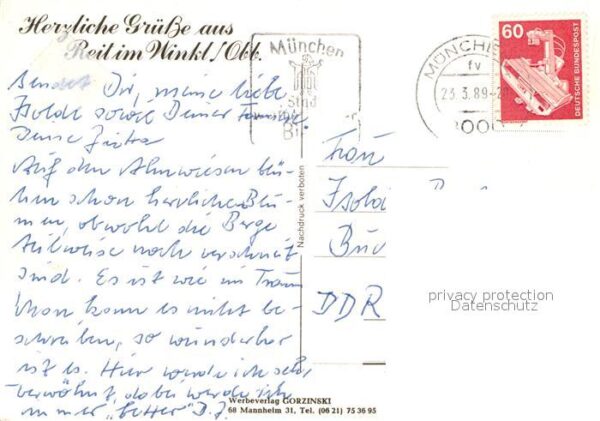 Herzliche Grüße aus
Reit im Winkl/Obb.
sendet Dir, meine liebe
Isolde sowie Deiner Familie
Deine
Auf den Almwiesen blü-
hen schon herrliche Blu-
men, obwohl die Berge
teilweise noch verschneit
sind. Es ist wie im Traum
Man kann es nicht be-
schreiben, so wunderbar
ist es. Hier werde ich sehr
verwöhnt, dabei werde ich
immer
München
Stad
B
MÜNCHE
fv
23.3.89-2
8000
60
DEUTSCHE BUNDESPOST
Nachdruck verboten
Frau
Isold
Buc
DDR
privacy protection
Datenschutz
Werbeverlag GORZINSKI
68 Mannheim 31, Tel. (06 21) 75 36 95